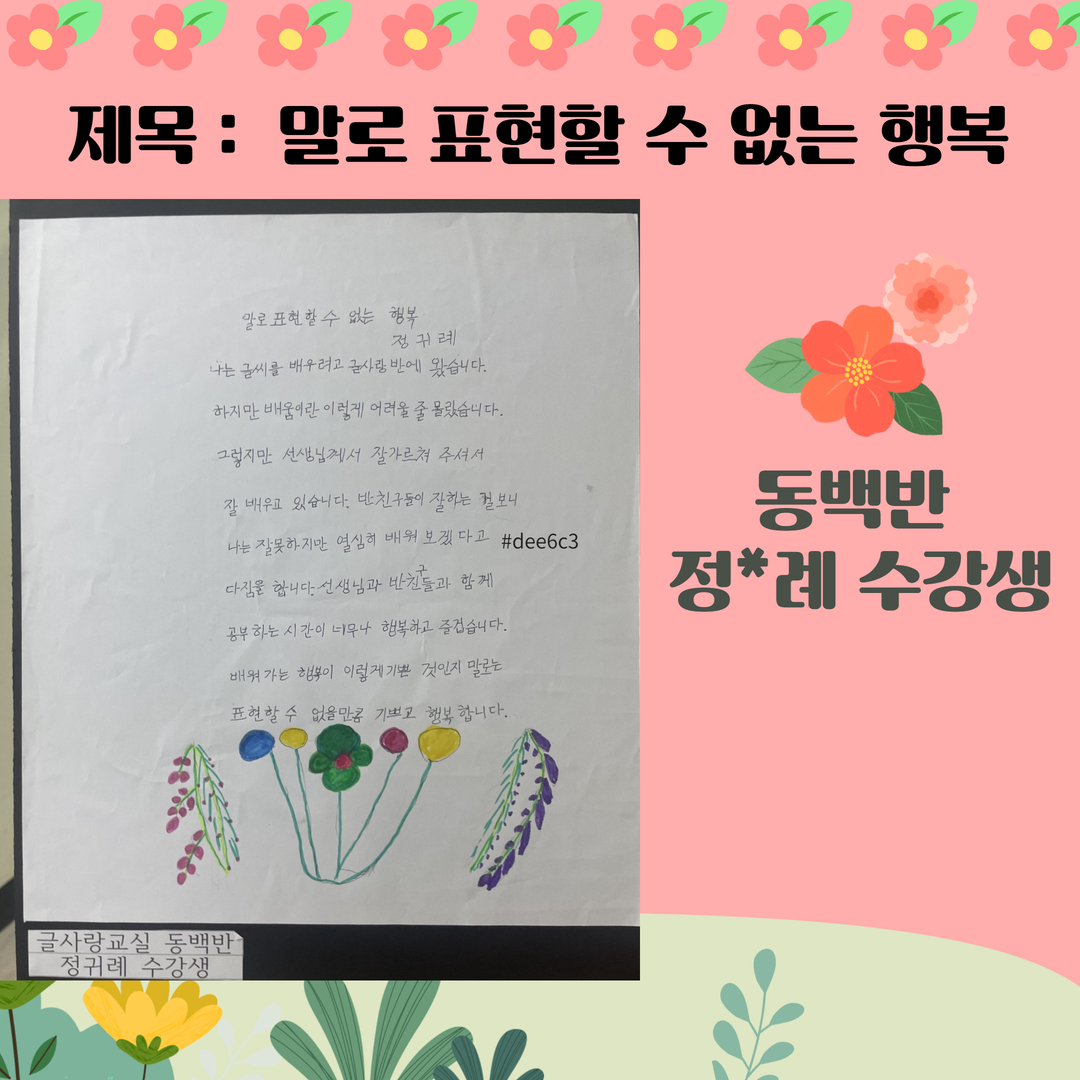 제목 : 말로 표현할 수 없는 행복
말로 표현할 수 없는 행복
정귀례
나는 글씨를 배우려고 글사랑반에 왔습니다.
하지만 배움이란 이렇게 어려울 줄 몰랐습니다.
그렇지만 선생님께서 잘가르쳐 주셔서
잘 배우고 있습니다. 반친구들이 잘하는 걸보니
나는 잘못하지만 열심히 배워 보겠다고
다짐을 합니다. 선생님과 반친구들과 함께
공부하는 시간이 너무나 행복하고 즐겁습니다.
배워가는 행복이 이렇게기쁜 것인지 말로는
표현할 수 없을만큼 기쁘고 행복합니다.
#dee6c3
글사랑교실 동백반
정귀례 수강생
동백반
정*례 수강생